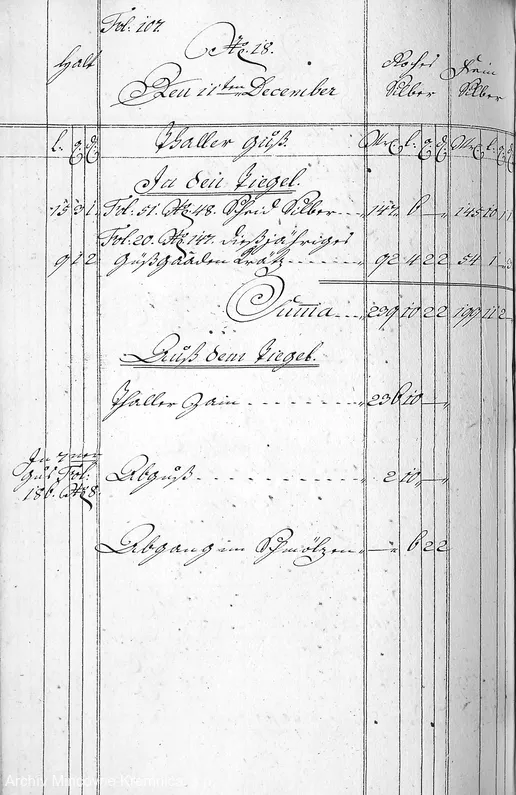 Fol: 107.
No. 18.
Halt
Roches Silber
Fein Silber
Den 11ten December
l. q. d.
Thaller Guß.
Mrk. l. q. d. Mrk. l. q. d.
In den Tiegel.
15 3 1 Fol: 51. No. 48. Scheid Silber 147. 6 — 145 10 1 1
Fol: 20. No. 147. diesjähriges
9 1 2 Gußgaaden Krätz 92 4 2 2 54 1
Summa 239 10 2 2 199 11 2
Auß dem Tiegel.
Thaller Zain 236 10 —
In 7ner
Guß Fol:
186. No. 8.
Abguß 2 10 —
Abgang im Schmölzen — 6 2 2
Archiv Mincovne Kremnica